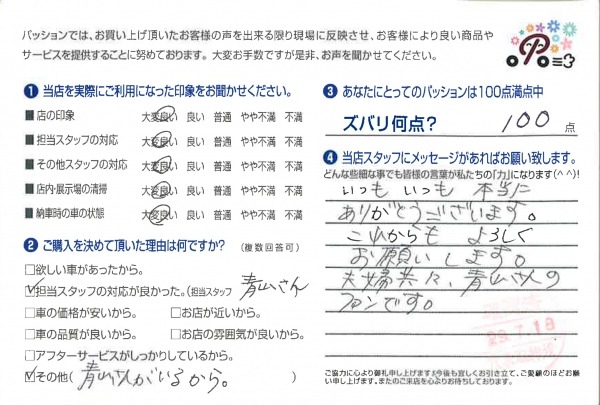 パッションでは、お買い上げ頂いたお客様の声を出来る限り現場に反映させ、お客様により良い商品や
サービスを提供することに努めております。大変お手数ですが是非、お声を聞かせてください。
❶ 当店を実際にご利用になった印象をお聞かせください。
■店の印象 大変良い 良い 普通 やや不満 不満
■担当スタッフの対応 大変良い 良い 普通 やや不満 不満
■その他スタッフの対応 大変良い 良い 普通 やや不満 不満
■店内・展示場の清掃 大変良い 良い 普通 やや不満 不満
■納車時の車の状態 大変良い 良い 普通 やや不満 不満
❷ ご購入を決めて頂いた理由は何ですか? (複数回答可)
□欲しい車があったから。
☑担当スタッフの対応が良かった。(担当スタッフ 青山さん
□車の価格が安いから。 □お店が近いから。
□車の品質が良いから。 □お店の雰囲気が良いから。
□アフターサービスがしっかりしているから。
☑その他( 青山さんがいるから。 )
❸ あなたにとってのパッションは100点満点中
ズバリ何点? 100 点
❹ 当店スタッフにメッセージがあればお願い致します。
どんな些細な事でも皆様の言葉が私たちの「力」になります(^^)!
いつも いつも 本当に
ありがとうございます。
これからも よろしく
お願いします。
夫婦共々、青山さんの
ファンです。
29.7.18
ご協力に心より御礼申し上げます!今後も宜しくお引き立て、ご愛顧のほどお願
い申し上げます。またのご来店を心よりお待ちしております。